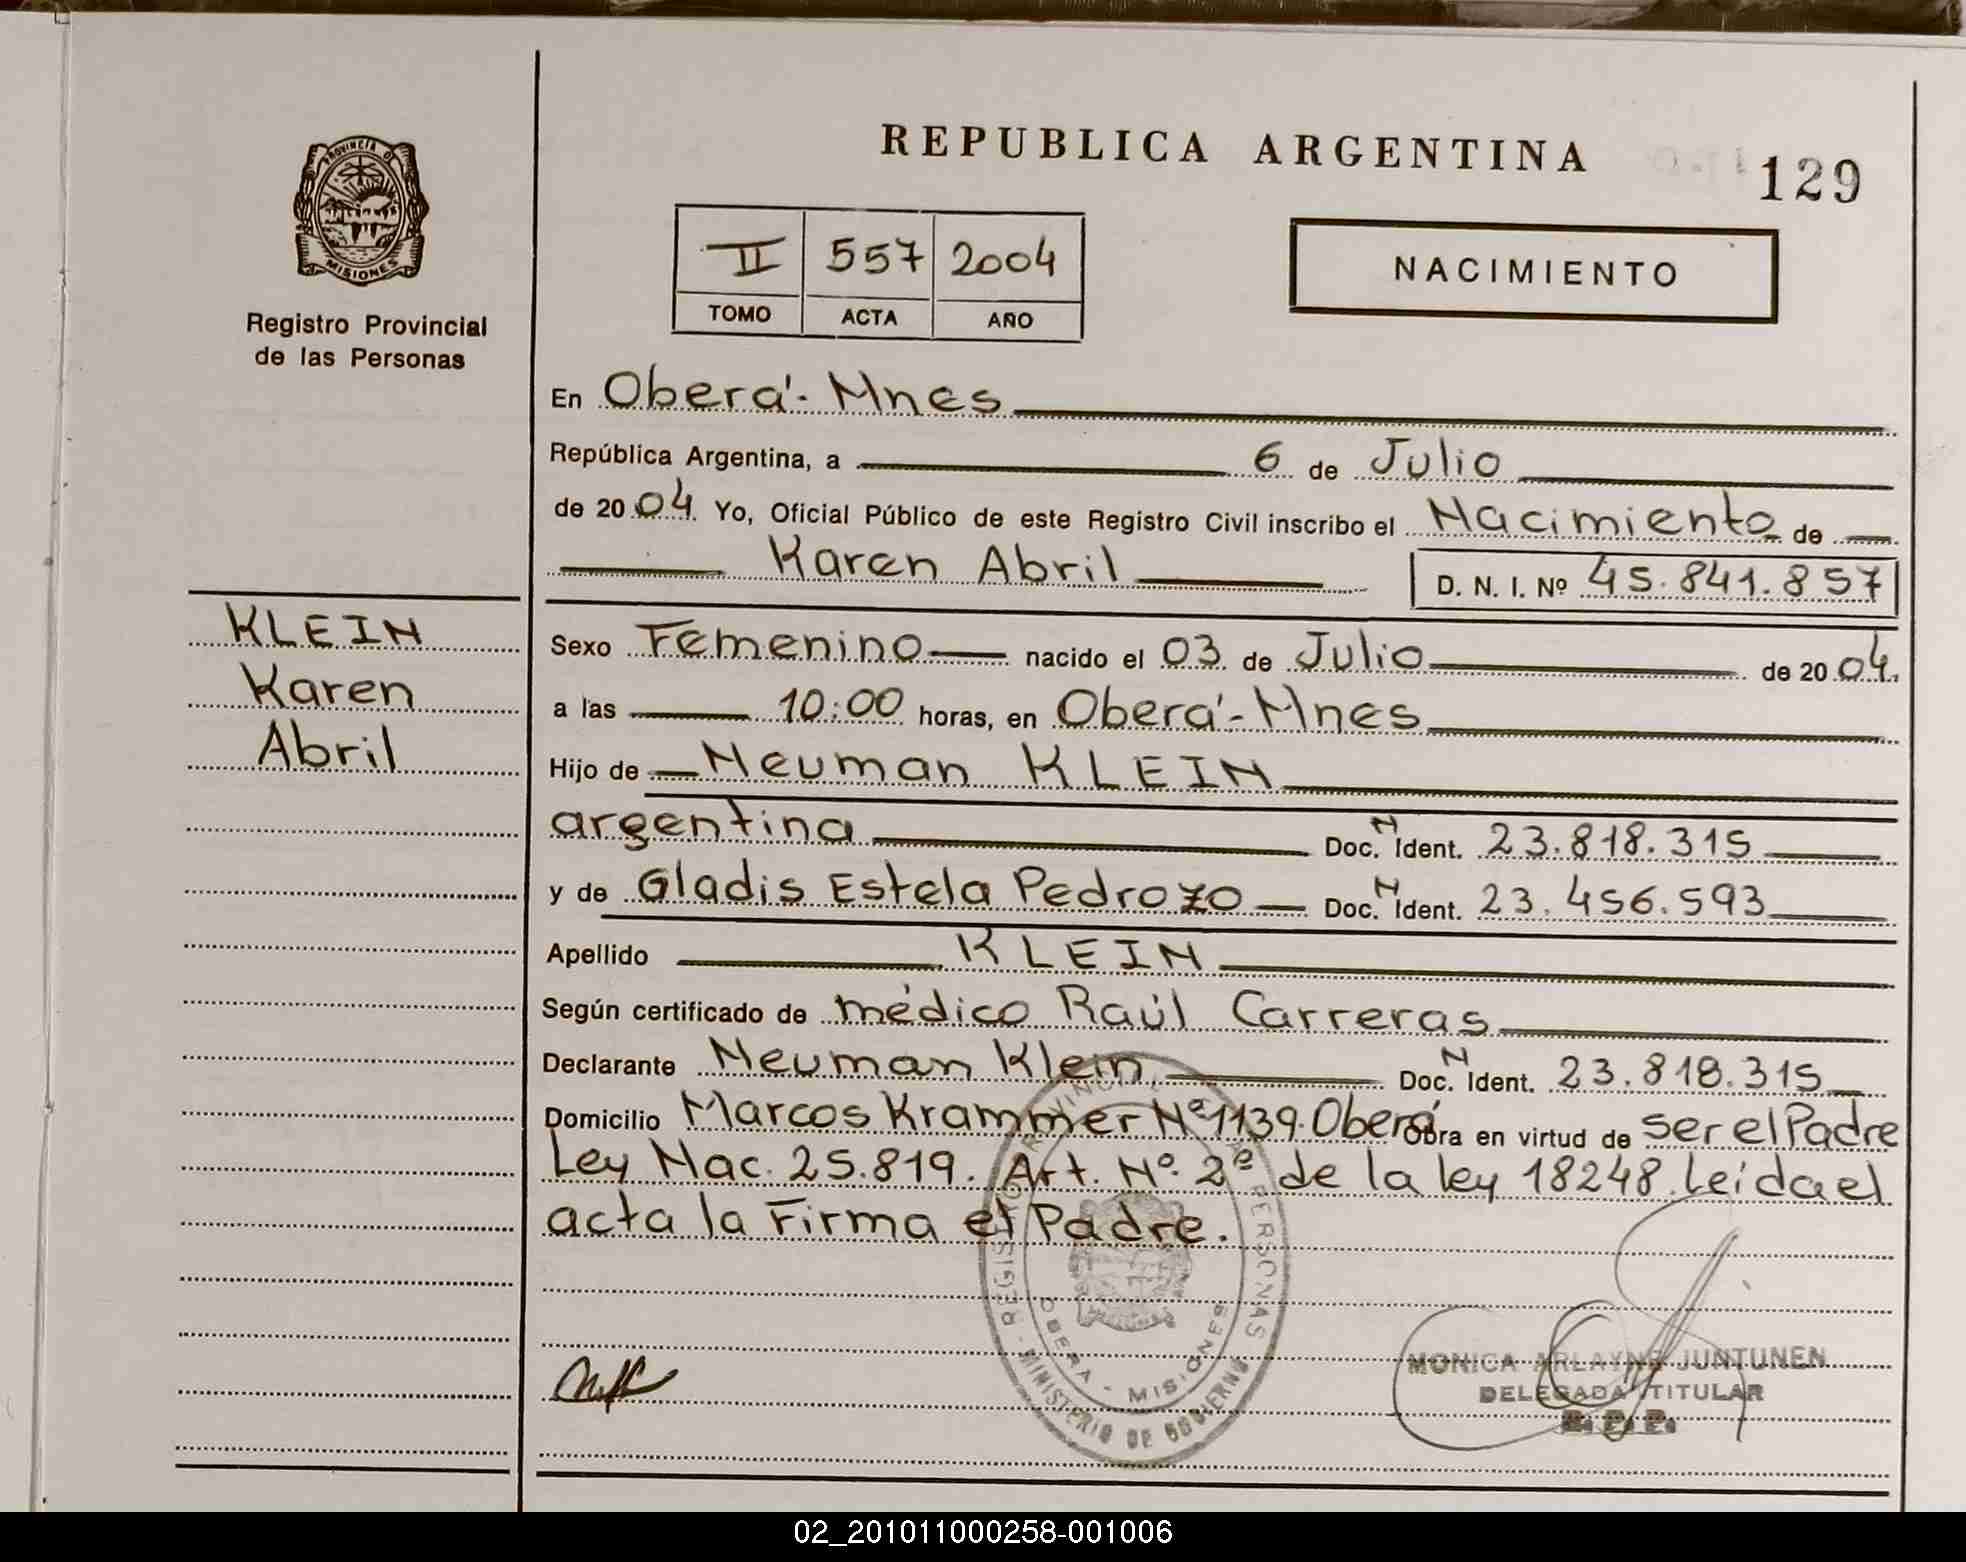 REPUBLICA ARGENTINA
129
PROVINCIA D
MISIONES
Registro Provincial
de las Personas
II 557 2004
TOMO ACTA AÑO
NACIMIENTO
En Oberá - Mnes
República Argentina, a 6 de Julio
de 2004 Yo, Oficial Público de este Registro Civil inscribo el Nacimiento de
Karen Abril D. N. I. Nº 45.841.857
KLEIN
Karen
Abril
Sexo Femenino nacido el 03 de Julio de 2004
a las 10:00 horas, en Oberá - Mnes
Hijo de Neuman KLEIN
argentina Doc. N Ident. 23.818.315
y de Gladis Estela Pedrozo Doc. N Ident. 23.456.593
Apellido KLEIN
Según certificado de médico Raúl Carreras
Declarante Neuman Klein Doc. N Ident. 23.818.315
Domicilio Marcos Krammer Nº 1139. Oberá Obra en virtud de ser el Padre
Ley Nac. 25.819. Art. Nº 2º de la ley 18248. Leida el
acta la Firma el Padre.
PERSONAS
OBERA - MISIONES
MINISTERIO DE GOBIERNO
MONICA ARLAYNE JUNTUNEN
DELEGADA TITULAR
02_201011000258-001006